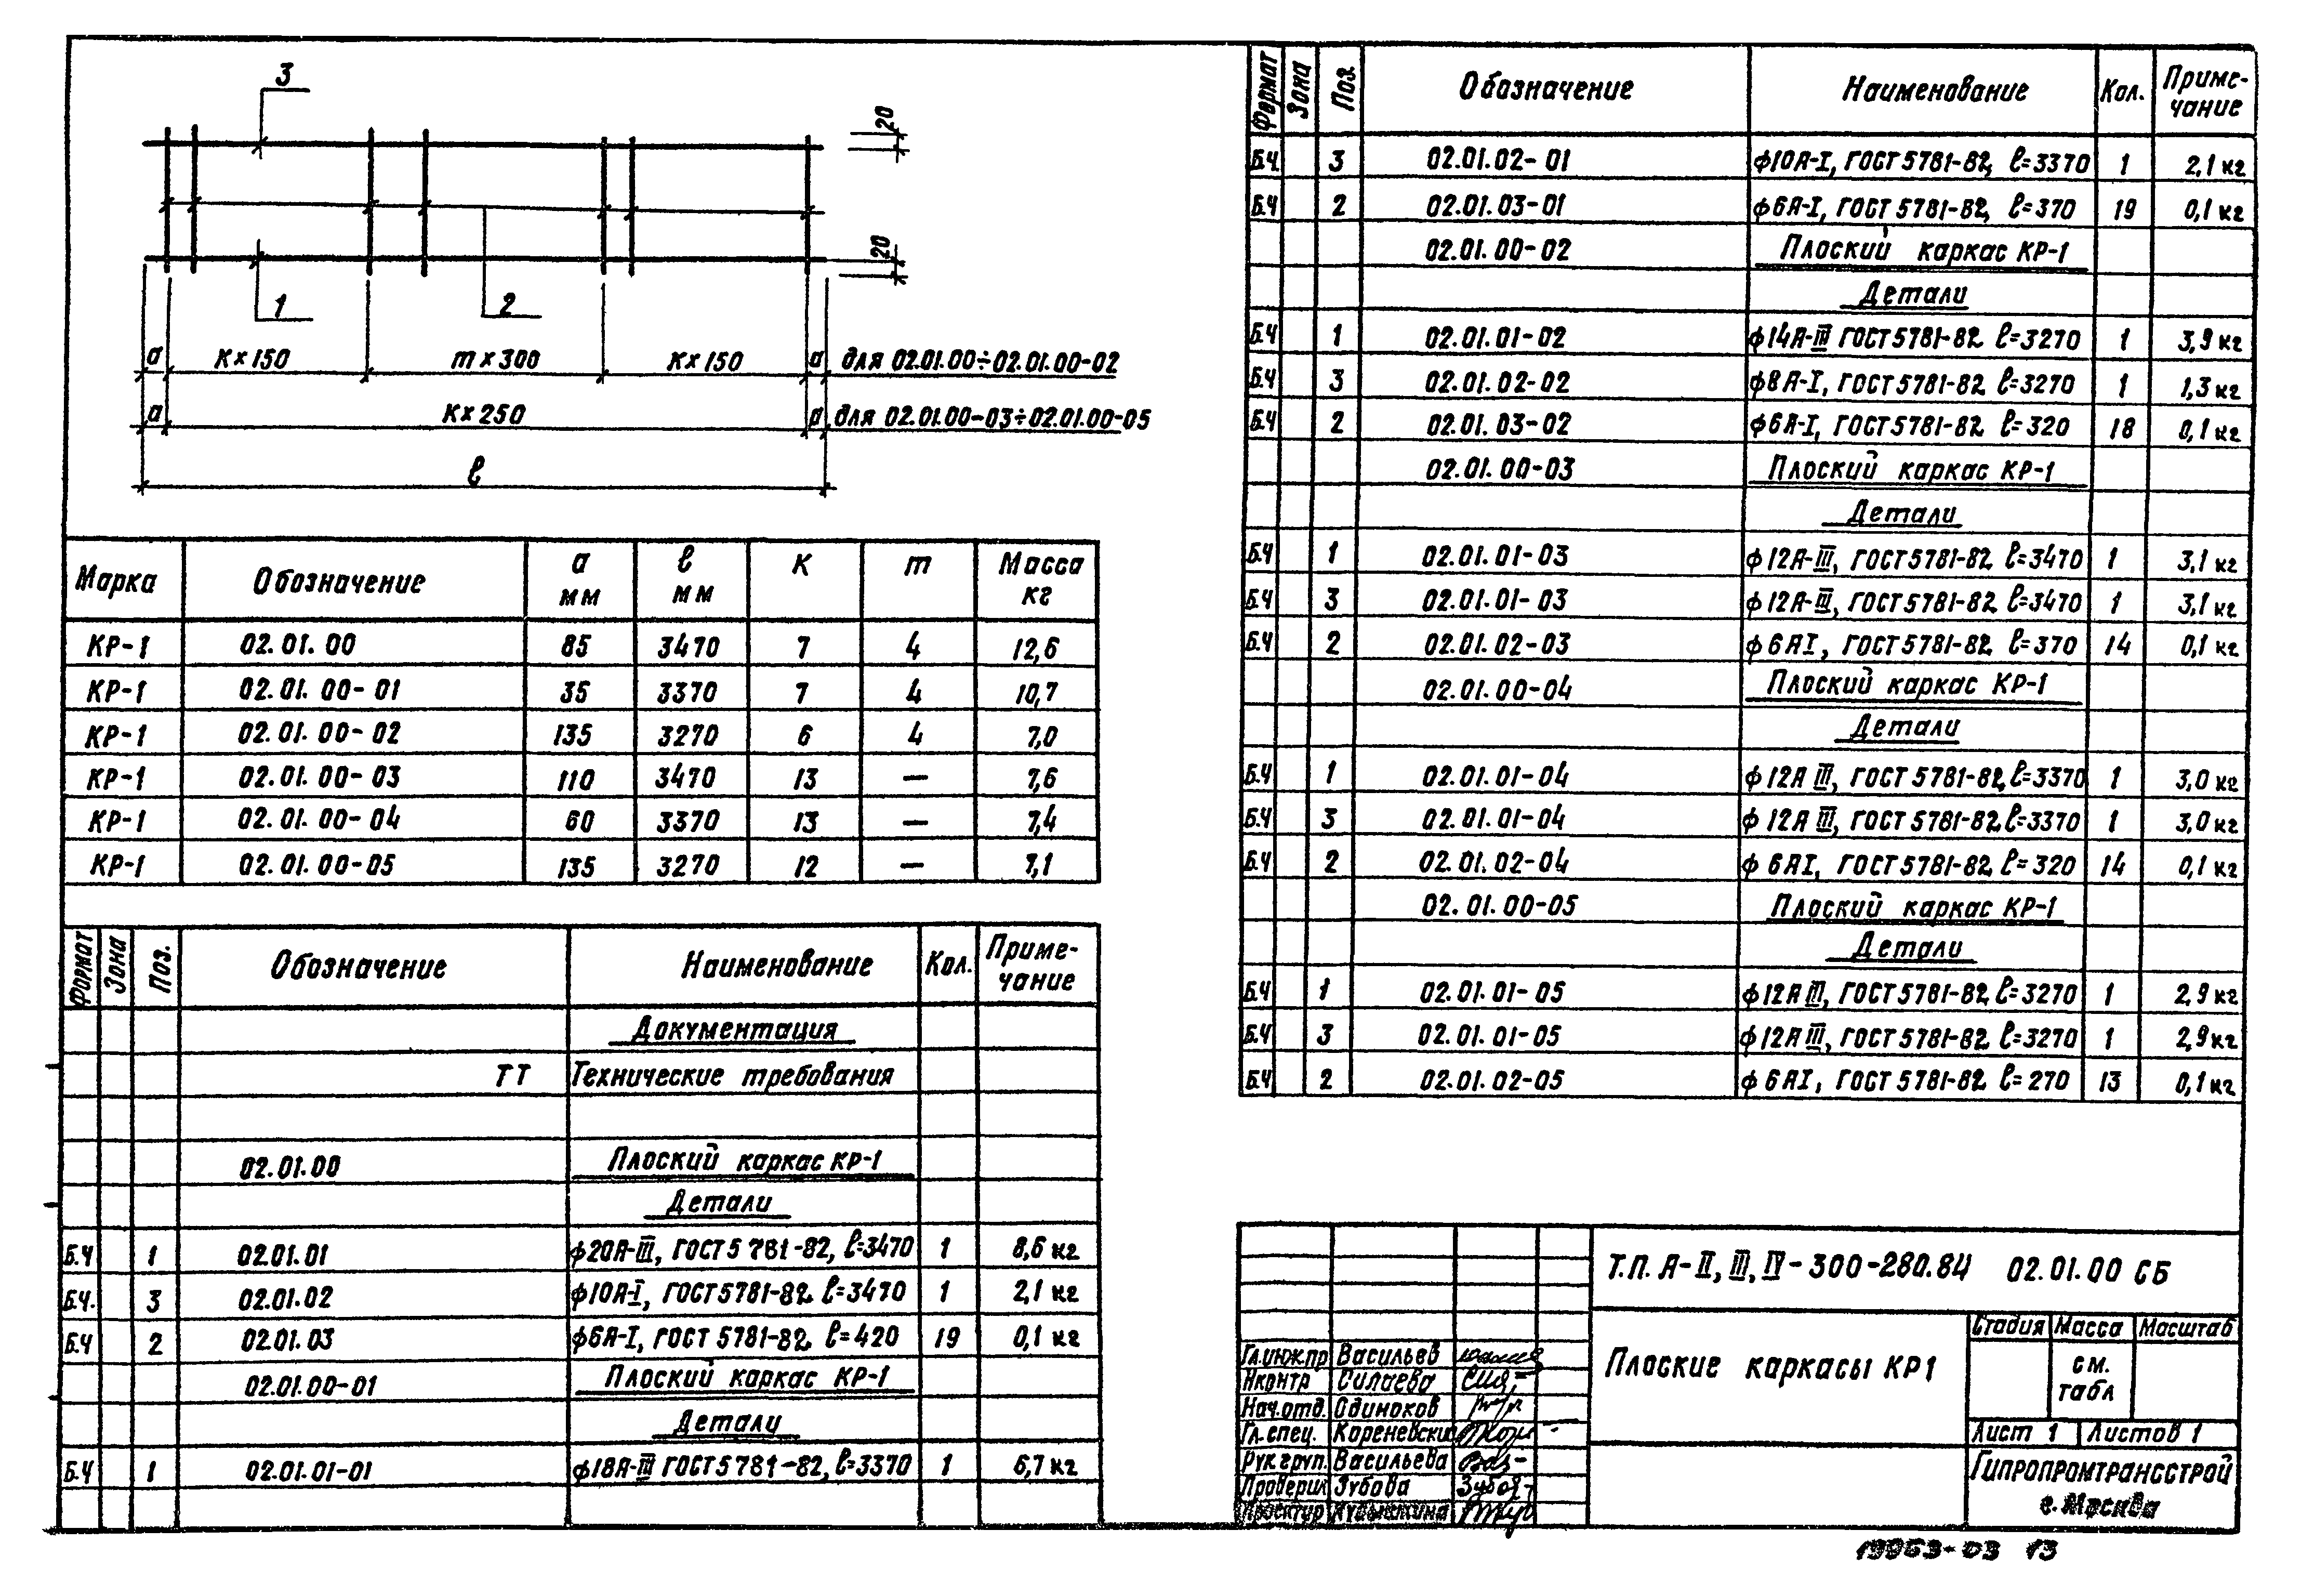 3
20
20
1
2
a
К×150
m×300
К×150
a
для 02.01.00÷02.01.00-02
a
К×250
a
для 02.01.00-03÷02.01.00-05
ℓ
Марка Обозначение a мм ℓ мм К m Масса кг
КР-1 02.01.00 85 3470 7 4 12,6
КР-1 02.01.00-01 35 3370 7 4 10,7
КР-1 02.01.00-02 135 3270 6 4 7,0
КР-1 02.01.00-03 110 3470 13 — 7,6
КР-1 02.01.00-04 60 3370 13 — 7,4
КР-1 02.01.00-05 135 3270 12 — 7,1
Формат Зона Поз. Обозначение Наименование Кол. Приме-чание
Документация
ТТ Технические требования
02.01.00 Плоский каркас КР-1
Детали
Б.Ч 1 02.01.01 ϕ20А-III, ГОСТ 5781-82, ℓ=3470 1 8,6 кг
Б.Ч. 3 02.01.02 ϕ10А-I, ГОСТ 5781-82 ℓ=3470 1 2,1 кг
Б.Ч 2 02.01.03 ϕ6А-I, ГОСТ 5781-82, ℓ=420 19 0,1 кг
02.01.00-01 Плоский каркас КР-1
Детали
Б.Ч 1 02.01.01-01 ϕ18А-III ГОСТ 5781-82, ℓ=3370 1 6,7 кг
Формат Зона Поз. Обозначение Наименование Кол. Приме-чание
Б.Ч 3 02.01.02-01 ϕ10А-I, ГОСТ 5781-82, ℓ=3370 1 2,1 кг
Б.Ч 2 02.01.03-01 ϕ6А-I, ГОСТ 5781-82, ℓ=370 19 0,1 кг
02.01.00-02 Плоский каркас КР-1
Детали
Б.Ч 1 02.01.01-02 ϕ14А-III ГОСТ 5781-82 ℓ=3270 1 3,9 кг
Б.Ч 3 02.01.02-02 ϕ8А-I, ГОСТ 5781-82 ℓ=3270 1 1,3 кг
Б.Ч 2 02.01.03-02 ϕ6А-I, ГОСТ 5781-82 ℓ=320 18 0,1 кг
02.01.00-03 Плоский каркас КР-1
Детали
Б.Ч 1 02.01.01-03 ϕ12А-III, ГОСТ 5781-82, ℓ=3470 1 3,1 кг
Б.Ч 3 02.01.01-03 ϕ12А-III, ГОСТ 5781-82 ℓ=3470 1 3,1 кг
Б.Ч 2 02.01.02-03 ϕ6АI, ГОСТ 5781-82, ℓ=370 14 0,1 кг
02.01.00-04 Плоский каркас КР-1
Детали
Б.Ч 1 02.01.01-04 ϕ12А III, ГОСТ 5781-82, ℓ=3370 1 3,0 кг
Б.Ч 3 02.01.01-04 ϕ12А III, ГОСТ 5781-82, ℓ=3370 1 3,0 кг
Б.Ч 2 02.01.02-04 ϕ6АI, ГОСТ 5781-82, ℓ=320 14 0,1 кг
02.01.00-05 Плоский каркас КР-1
Детали
Б.Ч 1 02.01.01-05 ϕ12А III, ГОСТ 5781-82, ℓ=3270 1 2,9 кг
Б.Ч 3 02.01.01-05 ϕ12А III, ГОСТ 5781-82 ℓ=3270 1 2,9 кг
Б.Ч 2 02.01.02-05 ϕ6АI, ГОСТ 5781-82 ℓ=270 13 0,1 кг
Т.П. А-II, III, IV-300-280.84 02.01.00 СБ
Плоские каркасы КР1
Стадия Масса Масштаб
см. табл
Лист 1 Листов 1
Гипропромтрансстрой
г. Москва
Гл.инж.пр Васильев
Н.контр Силаева
Нач.отд. Одиноков
Гл.спец. Кореневский
Рук.груп. Васильева
Проверил Зубова
19963-03 13